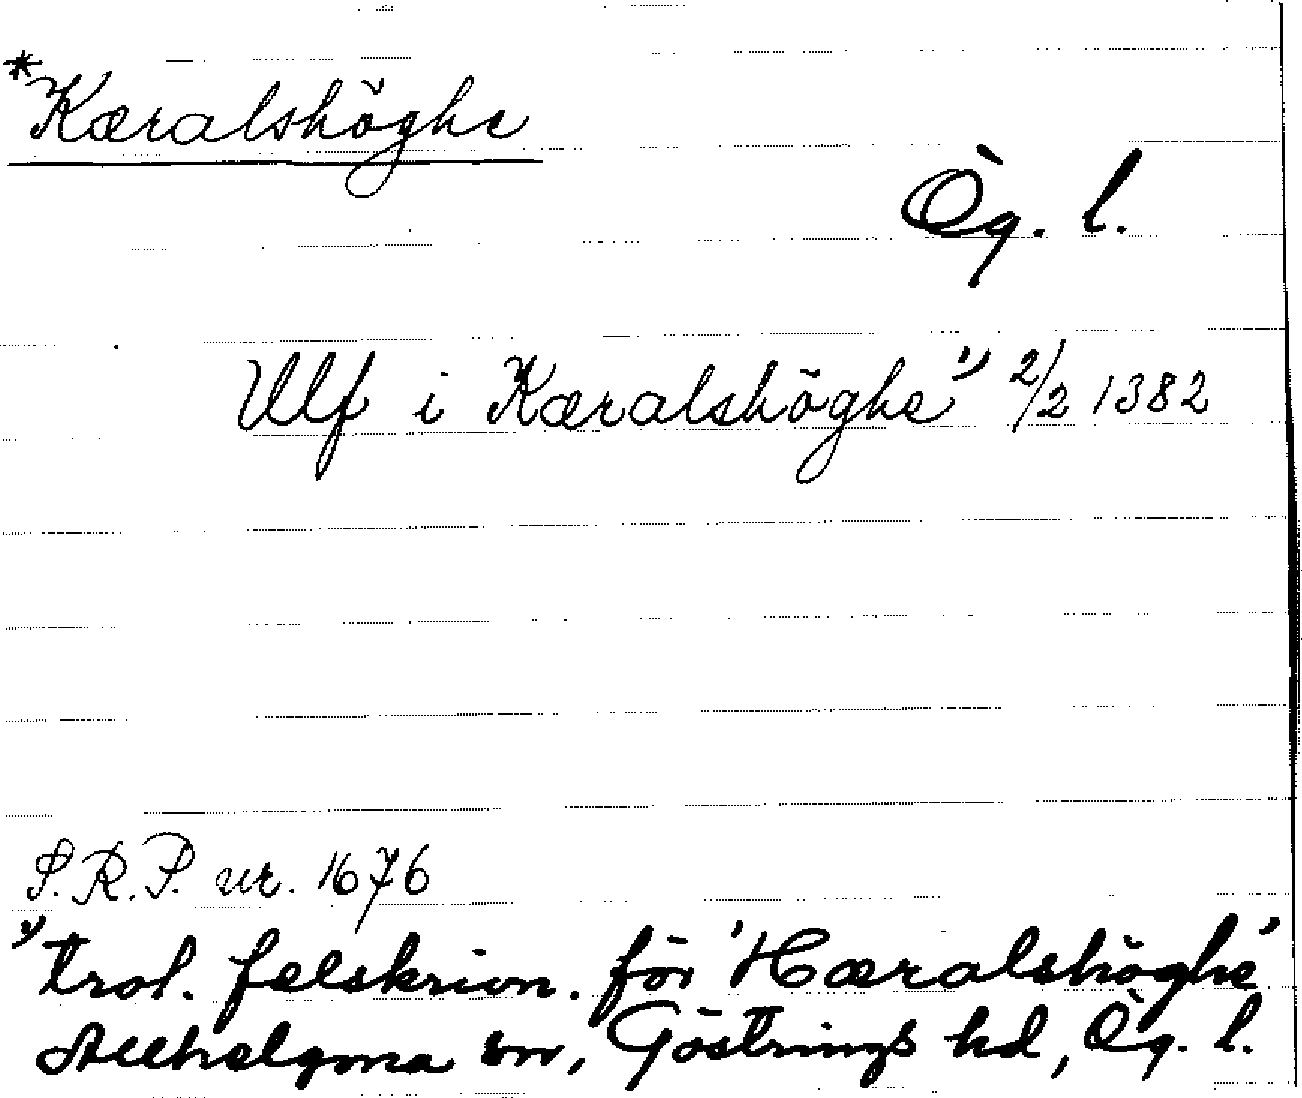 *Kæralshöghe
Ög. l.
Ulf i Kæralshöghe ¹⁾ 2/2 1382
S.R.P. nr. 1676
¹⁾ trol. felskrivn. för 'Hæralshöghe'
Allhelgona sn, Göstrings hd, Ög. l.